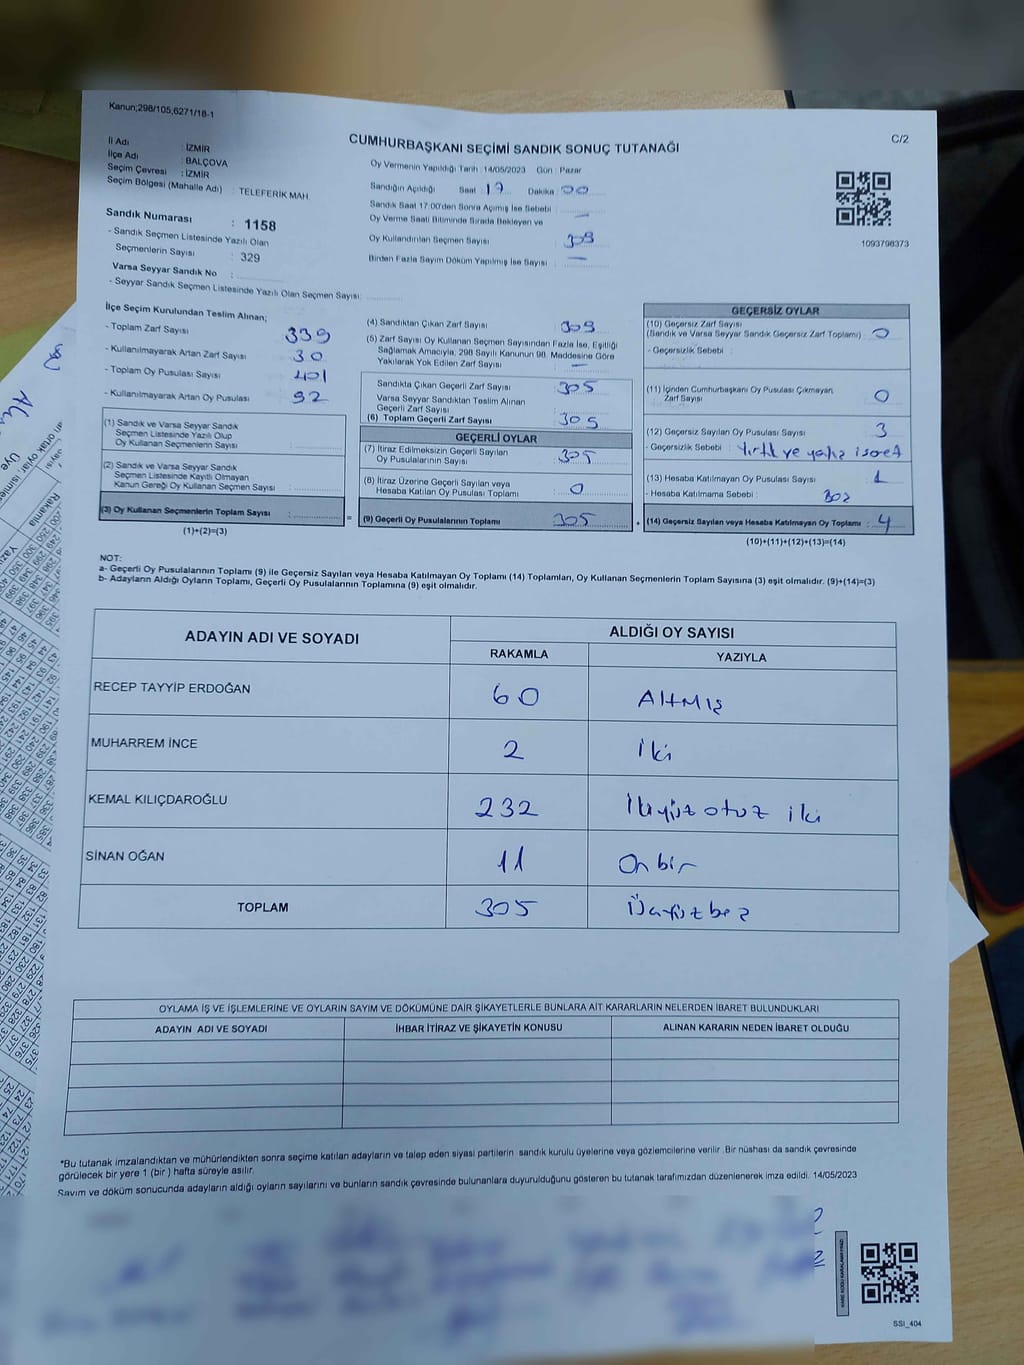 Kanun;298/105,6271/18-1
C/2
CUMHURBAŞKANI SEÇİMİ SANDIK SONUÇ TUTANAĞI
İl Adı : İZMİR
İlçe Adı : BALÇOVA
Seçim Çevresi : İZMİR
Seçim Bölgesi (Mahalle Adı) : TELEFERİK MAH.
Sandık Numarası : 1158
- Sandık Seçmen Listesinde Yazılı Olan
Seçmenlerin Sayısı : 329
Varsa Seyyar Sandık No :
- Seyyar Sandık Seçmen Listesinde Yazılı Olan Seçmen Sayısı:
Oy Vermenin Yapıldığı Tarih :14/05/2023 Gün : Pazar
Sandığın Açıldığı Saat 17 Dakika 00
Sandık Saat 17:00'den Sonra Açılmış İse Sebebi :
Oy Verme Saati Bitiminde Sırada Bekleyen ve —
Oy Kullandırılan Seçmen Sayısı 309
Birden Fazla Sayım Döküm Yapılmış İse Sayısı : —
1093798373
İlçe Seçim Kurulundan Teslim Alınan;
- Toplam Zarf Sayısı 339
- Kullanılmayarak Artan Zarf Sayısı : 30
- Toplam Oy Pusulası Sayısı : 401
- Kullanılmayarak Artan Oy Pusulası : 92
(1) Sandık ve Varsa Seyyar Sandık
Seçmen Listesinde Yazılı Olup
Oy Kullanan Seçmenlerin Sayısı :
(2) Sandık ve Varsa Seyyar Sandık
Seçmen Listesinde Kayıtlı Olmayan
Kanun Gereği Oy Kullanan Seçmen Sayısı :
(3) Oy Kullanan Seçmenlerin Toplam Sayısı :
(1)+(2)=(3)
(4) Sandıktan Çıkan Zarf Sayısı : 309
(5) Zarf Sayısı Oy Kullanan Seçmen Sayısından Fazla İse, Eşitliği
Sağlamak Amacıyla, 298 Sayılı Kanunun 98. Maddesine Göre
Yakılarak Yok Edilen Zarf Sayısı : —
Sandıkta Çıkan Geçerli Zarf Sayısı : 305
Varsa Seyyar Sandıktan Teslim Alınan
Geçerli Zarf Sayısı :
(6) Toplam Geçerli Zarf Sayısı : 305
GEÇERLİ OYLAR
(7) İtiraz Edilmeksizin Geçerli Sayılan
Oy Pusulalarının Sayısı : 305
(8) İtiraz Üzerine Geçerli Sayılan veya
Hesaba Katılan Oy Pusulası Toplamı : 0
= (9) Geçerli Oy Pusulalarının Toplamı : 305 +
GEÇERSİZ OYLAR
(10) Geçersiz Zarf Sayısı
(Sandık ve Varsa Seyyar Sandık Geçersiz Zarf Toplamı) : 0
- Geçersizlik Sebebi :
(11) İçinden Cumhurbaşkanı Oy Pusulası Çıkmayan
Zarf Sayısı : 0
(12) Geçersiz Sayılan Oy Pusulası Sayısı : 3
- Geçersizlik Sebebi : Yırtık ve
(13) Hesaba Katılmayan Oy Pusulası Sayısı : 1
- Hesaba Katılmama Sebebi :
(14) Geçersiz Sayılan veya Hesaba Katılmayan Oy Toplamı : 4
(10)+(11)+(12)+(13)=(14)
NOT:
a- Geçerli Oy Pusulalarının Toplamı (9) ile Geçersiz Sayılan veya Hesaba Katılmayan Oy Toplamı (14) Toplamları, Oy Kullanan Seçmenlerin Toplam Sayısına (3) eşit olmalıdır. (9)+(14)=(3)
b- Adayların Aldığı Oyların Toplamı, Geçerli Oy Pusulalarının Toplamına (9) eşit olmalıdır.
ADAYIN ADI VE SOYADI
ALDIĞI OY SAYISI
RAKAMLA YAZIYLA
RECEP TAYYİP ERDOĞAN 60 Altmış
MUHARREM İNCE 2 İki
KEMAL KILIÇDAROĞLU 232 İkiyüz otuz iki
SİNAN OĞAN 11 On bir
TOPLAM 305 Üçyüz beş
OYLAMA İŞ VE İŞLEMLERİNE VE OYLARIN SAYIM VE DÖKÜMÜNE DAİR ŞİKAYETLERLE BUNLARA AİT KARARLARIN NELERDEN İBARET BULUNDUKLARI
ADAYIN ADI VE SOYADI İHBAR İTİRAZ VE ŞİKAYETİN KONUSU ALINAN KARARIN NEDEN İBARET OLDUĞU
*Bu tutanak imzalandıktan ve mühürlendikten sonra seçime katılan adayların ve talep eden siyasi partilerin sandık kurulu üyelerine veya gözlemcilerine verilir. Bir nüshası da sandık çevresinde
görülecek bir yere 1 (bir ) hafta süreyle asılır.
Sayım ve döküm sonucunda adayların aldığı oyların sayılarını ve bunların sandık çevresinde bulunanlara duyurulduğunu gösteren bu tutanak tarafımızdan düzenlenerek imza edildi. 14/05/2023
SSI_404